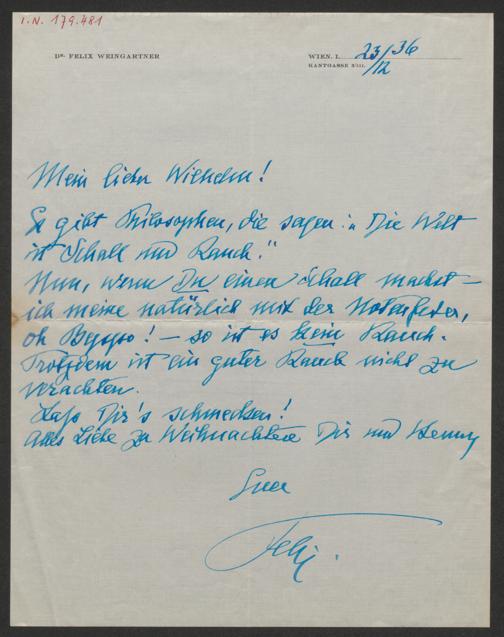 I.N. 179.481
DR. FELIX WEINGARTNER
WIEN, I. 23/36
KANTGASSE 3/III. /12
Mein lieber Wilhelm!
Es gibt Philosophen, die sagen: „Die Welt
ist Schall und Rauch."
Nun, wenn Du einen Schall machst –
ich meine natürlich mit der Notenfeder,
oh Beppo! – so ist es kein Rauch.
Trotzdem ist ein guter Rauch nicht zu
verachten.
Lass Dir's schmecken!
Alles Liebe zu Weihnachten Dir und
Euer
Felix.